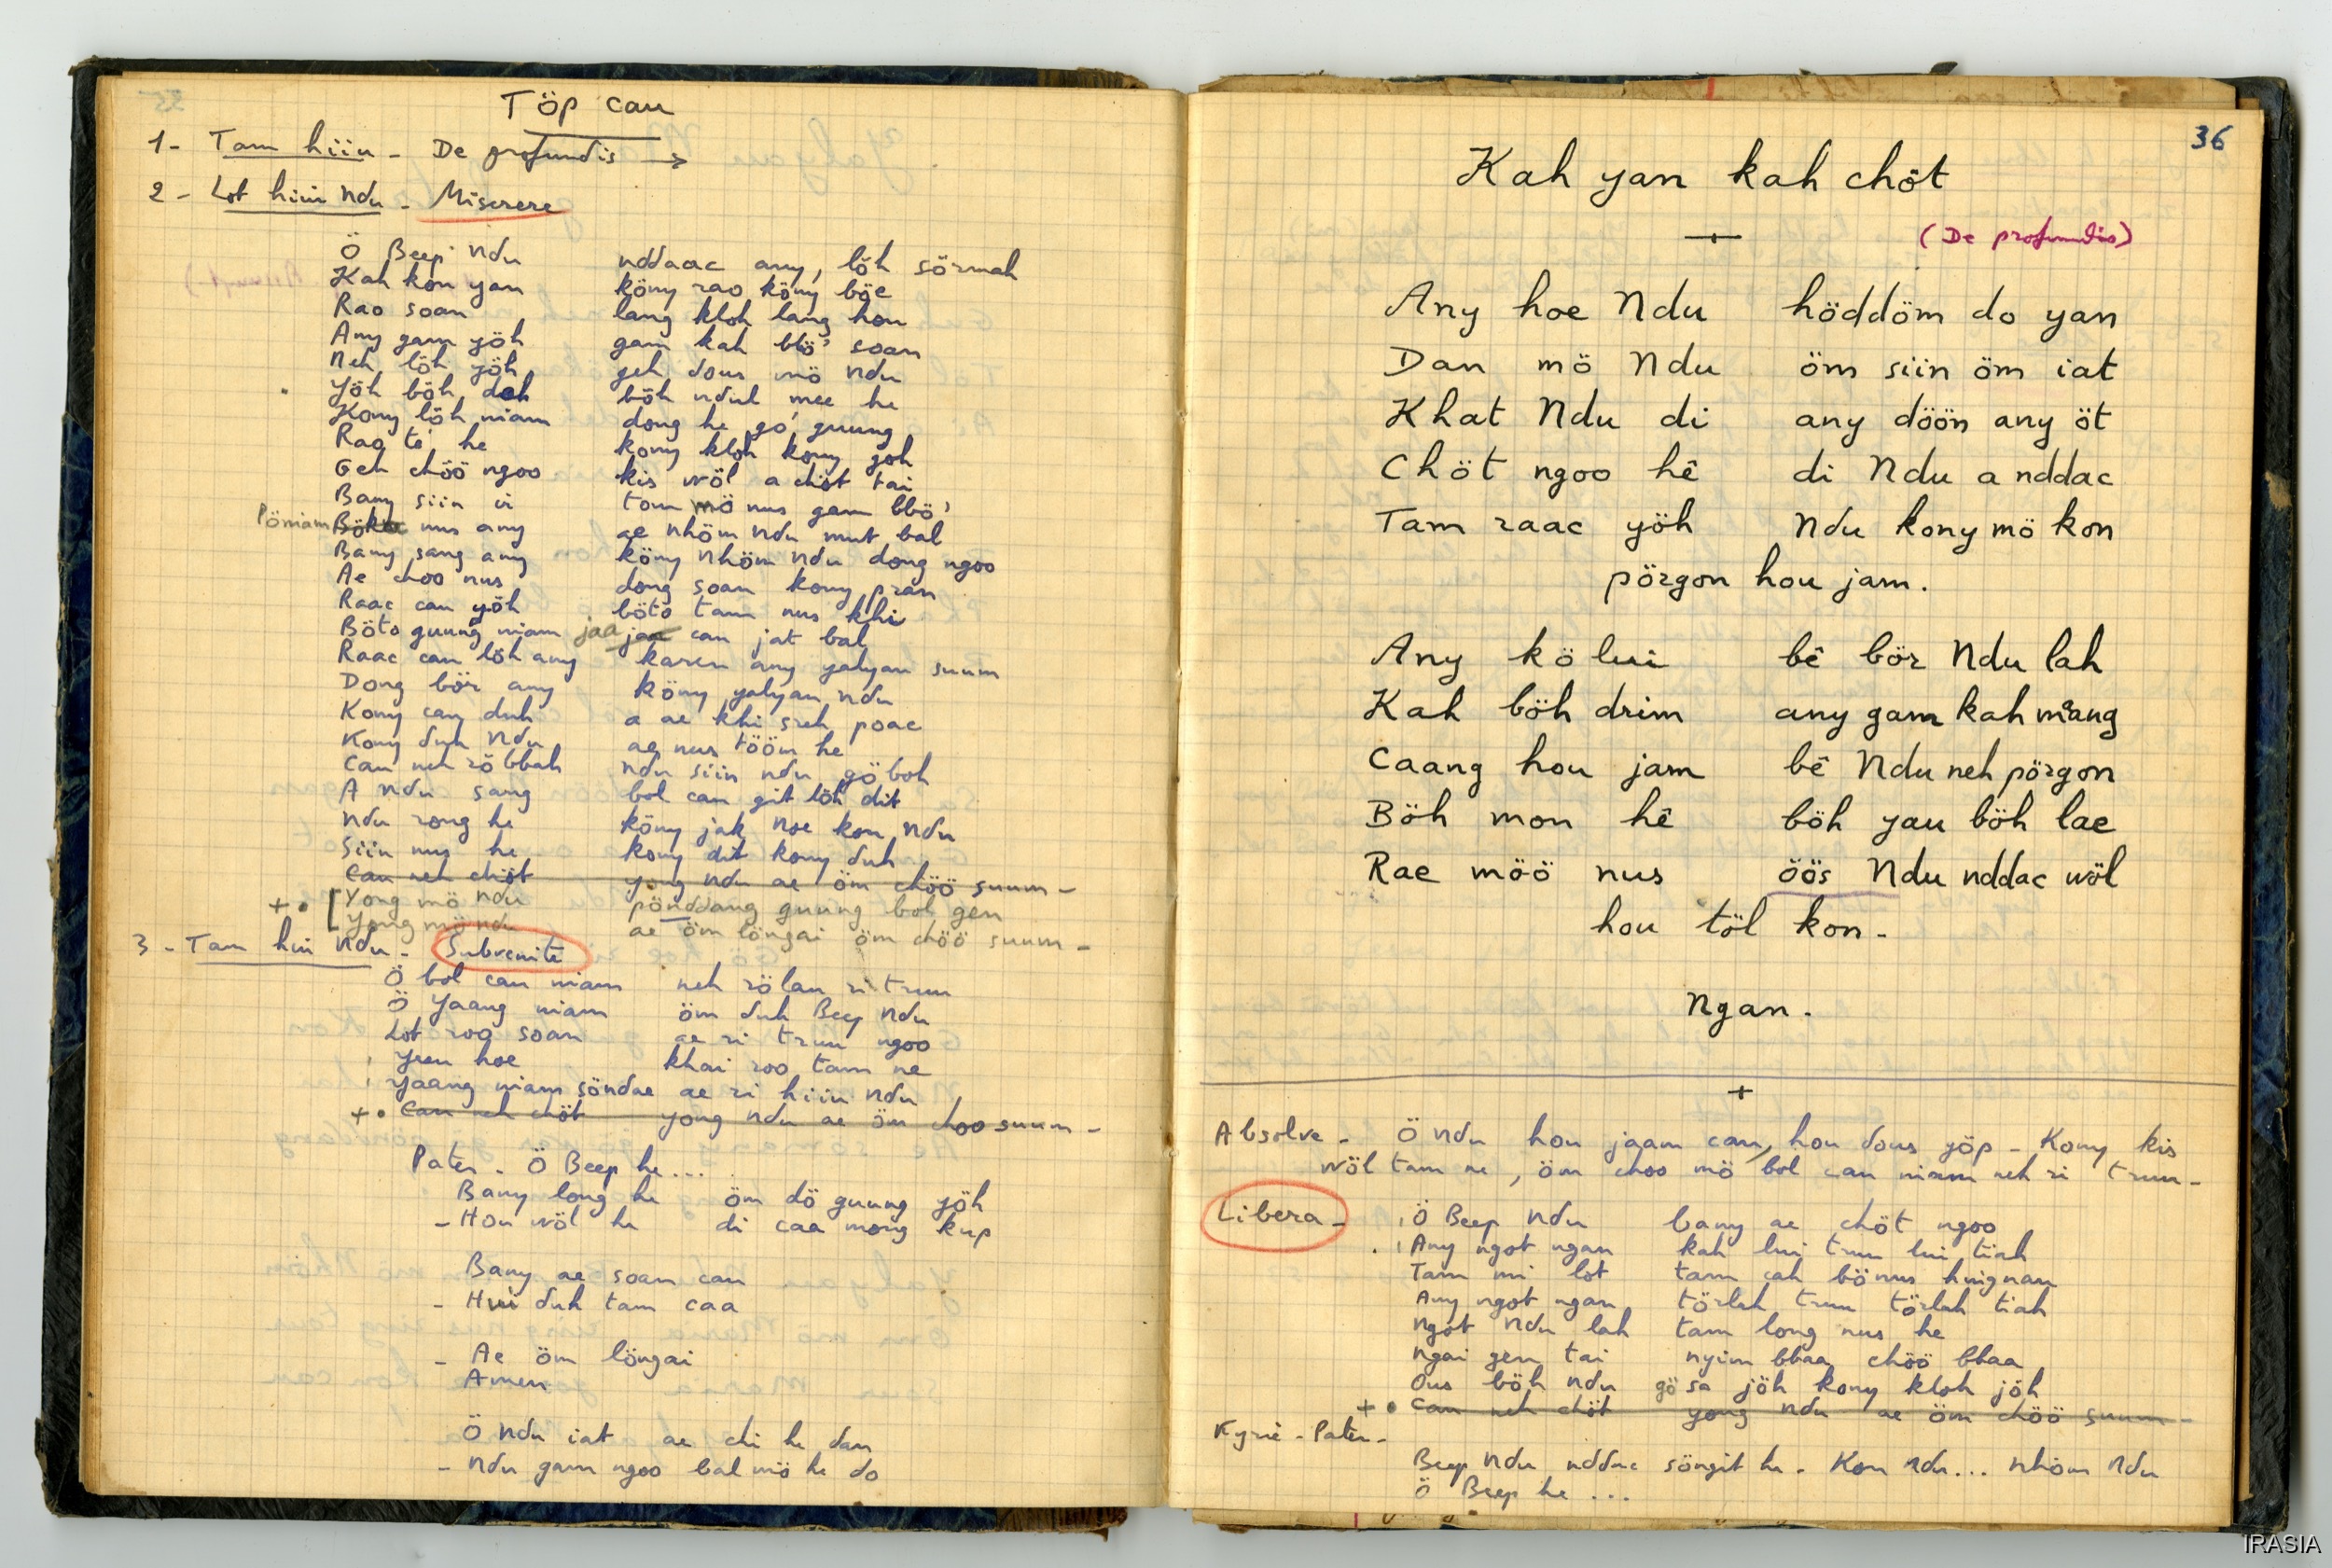 Töp cau
1- Tam hiiu - De profundis →
2 - Lot hiiu Ndu - Miserere
Ö Beep Ndu nddaac any, löh sörmah
Kah kon yan köny rao köny böe
Rao soan lang kloh lang hou
Any gam yöh gam kah blö' soan
Neh löh yöh geh dous mö Ndu
Yöh böh deh böh ndul mee he
Kony löh niam dong he gö guung
Rao tê he kony kloh kony yöh
Geh chöö ngoo kis wöl a chöt tai
Bany siin vi tom mö nus gam blö'
Pöniam nus any ae nhöm ndu mut bal
Bany sang any köny nhöm ndu dong ngoo
Ae choo nus dong soan kony pran
Raac cau yöh bötö tam nus khi
Böto guung niam jaa cau jat bal
Raac cau löh any karen any yalyau suum
Dong bör any köny yalyau ndu
Kony cay duh a ae khi sreh poac
Kony duh Ndu ae nus tööm he
Cau neh röbbah ndu siin ndu gö boh
A ndu sang bol cau git löh dit
Ndu rong he köny jak noe kon ndu
Siin nus he kony dit kony duh
Cau neh chöt yong ndu ae öm chöö suum -
+ • [ Yong mö ndu pönddang guung bol gen
Yong mö ndu ae öm löngai öm chöö suum -
3 - Tam hui Ndu - Subvenite
Ö bol cau niam neh rölau ri truu
Ö Yaang niam öm duh Beep Ndu
Lot roo soan ae ri truu ngoo
Yuu hoe khai roo tam ne
Yaang niam söndae ae ri hiiu ndu
+ • Cau neh chöt yong ndu ae öm choo suum -
Pater - Ö Beep he ...
Bany long he öm dö guung yöh
- Hou wöl he di caa mong kup
Bany ae soan cau
- Hui duh tam caa
- Ae öm löngai
Amen
Ö ndu iat ae chi he dan
- Ndu gam ngoo bal mö he do
36
Kah yan kah chöt
(De profundis)
Any hoe Ndu höddöm do yan
Dan mö Ndu öm siin öm iat
Khat Ndu di any döön any öt
Chöt ngoo hê di Ndu a nddac
Tam raac yöh Ndu kony mö kon
pörgon hou jam.
Any kö lui bê bör Ndu lah
Kah böh drim any gam kah mang
Caang hou jam bê Ndu neh pörgon
Böh mon hê böh yau böh lae
Rae möö nus öös Ndu nddac wöl
hou töl kon -
Ngan.
+
Absolve - Ö ndu hou jaam cau, hou dous yöp - Kony kis
wöl tam ne, öm choo mö bol cau niam neh ri truu -
Libera - Ö Beep Ndu bany ae chöt ngoo
Any ngot ngan kah lui truu lui tiah
Tam mi lot tam cah bönus huignau
Any ngot ngan törlah truu törlah tiah
Ngöt Ndu lah tam long nus he
Ngai gen tai nyim bhaa chöö bhaa
Ous böh ndu gö sa jöh kony kloh jöh
+ • Cau neh chöt yong ndu ae öm chöö suum -
Kyrie - Pater -
Beep Ndu nddac söngit he - Kon ndu ... nhöm Ndu
Ö Beep he ...
IRASIA